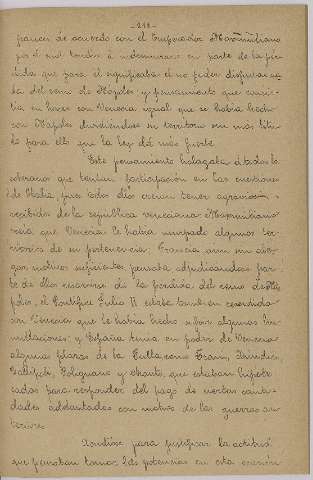 -211-
frances de acuerdo con el Emperador Maximiliano
por el cual tendia á indemnizarse en parte de la per-
dida que para él significaba el no poder disputar na-
da del reino de Napoles y pensamiento que consis-
tia en hacer con Venecia igual que se habia hecho
con Napoles dividiendose su territorio sin mas titu-
lo para ello que la ley del mas fuerte.
Este pensamiento halagaba á todos los
soberanos que tenian participación en las cuestiones
de Italia, pues todos ellos creian tener agravios
recibidos de la republica veneciana: Maximiliano
decia que Venecia le habia usurpado algunos te-
rritorios de su pertenencia. Francia aun sin ale-
gar motivos suficientes pensaba adjudicandose par-
te de ellos resarcirse de la perdida del reino de Ná-
poles, el Pontifice Julio II estaba tambien resentido
con Venecia que le habia hecho sufrir algunas hu-
millaciones y España tenia en poder de Venecia
algunas plazas de la Pulla, como Trani, Brindis,
Gallipoli, Polignano y Otranto, que estaban hipote-
cadas para responder del pago de ciertas canti-
dades adelantadas con motivo de las guerras an-
teriores.
para justificar la actitud
que pensaban tomar las potencias en esta ocasión